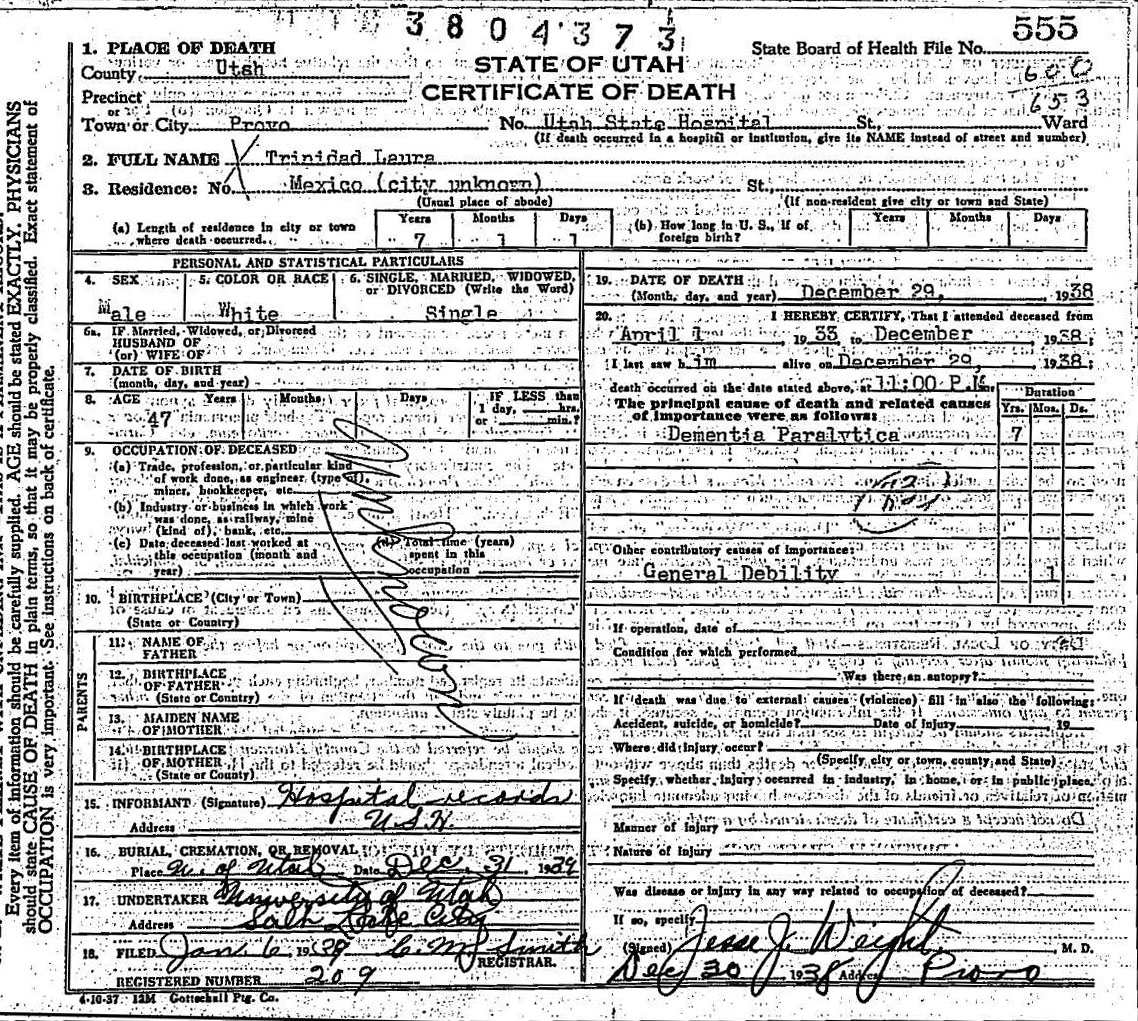 3804373
555
1. PLACE OF DEATH
State Board of Health File No.
County Utah
STATE OF UTAH
600
Precinct
CERTIFICATE OF DEATH
653
or
Town or City Provo No. Utah State Hospital St., Ward
(If death occurred in a hospital or institution, give its NAME instead of street and number)
2. FULL NAME Trinidad Laura
3. Residence: No. Mexico (city unknorn) St.,
(Usual place of abode) (If non-resident give city or town and State)
(a) Length of residence in city or town where death occurred. Years Months Days
7 1 1
(b) How long in U. S., if of foreign birth? Years Months Days
PERSONAL AND STATISTICAL PARTICULARS
4. SEX 5. COLOR OR RACE 6. SINGLE, MARRIED, WIDOWED,
or DIVORCED (Write the Word)
Male White Single
6a. IF Married, Widowed, or Divorced
HUSBAND OF
(or) WIFE OF
7. DATE OF BIRTH
(month, day, and year)
8. AGE Years Months Days IF LESS than
1 day, hrs.
or min.?
47
9. OCCUPATION OF DECEASED
(a) Trade, profession, or particular kind
of work done, as engineer (type of),
miner, bookkeeper, etc.
(b) Industry or business in which work
was done, as railway, mine
(kind of), bank, etc.
(c) Date deceased last worked at
this occupation (month and
year)
(d) Total time (years)
spent in this
occupation
Unknown
10. BIRTHPLACE (City or Town)
(State or Country)
PARENTS
11. NAME OF
FATHER
12. BIRTHPLACE
OF FATHER
(State or County)
13. MAIDEN NAME
OF MOTHER
14. BIRTHPLACE
OF MOTHER
(State or County)
15. INFORMANT (Signature) Hospital records
Address U.S.H.
16. BURIAL, CREMATION, OR REMOVAL
Place U. of Utah Date Dec. 31 1939
17. UNDERTAKER University of Utah
Address Salt Lake City
18. FILED Jan. 6 1939 C. M. Smith
REGISTRAR.
REGISTERED NUMBER 209
4-10-37 12M Gottschall Ptg. Co.
19. DATE OF DEATH
(Month, day, and year) December 29, 1938
20. I HEREBY CERTIFY, That I attended deceased from
April 1 1933 to December 1938
I last saw him alive on December 29, 1938;
death occurred on the date stated above, at 11:00 P.M.
The principal cause of death and related causes
of importance were as follows:
Duration
Yrs. Mos. Ds.
Dementia Paralytica 7
Other contributory causes of importance:
General Debility 1
If operation, date of
Condition for which performed
Was there an autopsy?
If death was due to external causes (violence) fill in also the following:
Accident, suicide, or homicide? Date of Injury 19
Where did injury occur?
(Specify city or town, county, and State)
Specify whether injury occurred in industry, in home, or in public place.
Manner of Injury
Nature of Injury
Was disease or injury in any way related to occupation of deceased?
If so, specify
(Signed) Jesse J. Weight, M. D.
Dec 30 1938 Address Provo
Every item of information should be carefully supplied. AGE should be stated EXACTLY. PHYSICIANS
should state CAUSE OF DEATH in plain terms, so that it may be properly classified. Exact statement of
OCCUPATION is very important. See instructions on back of certificate.